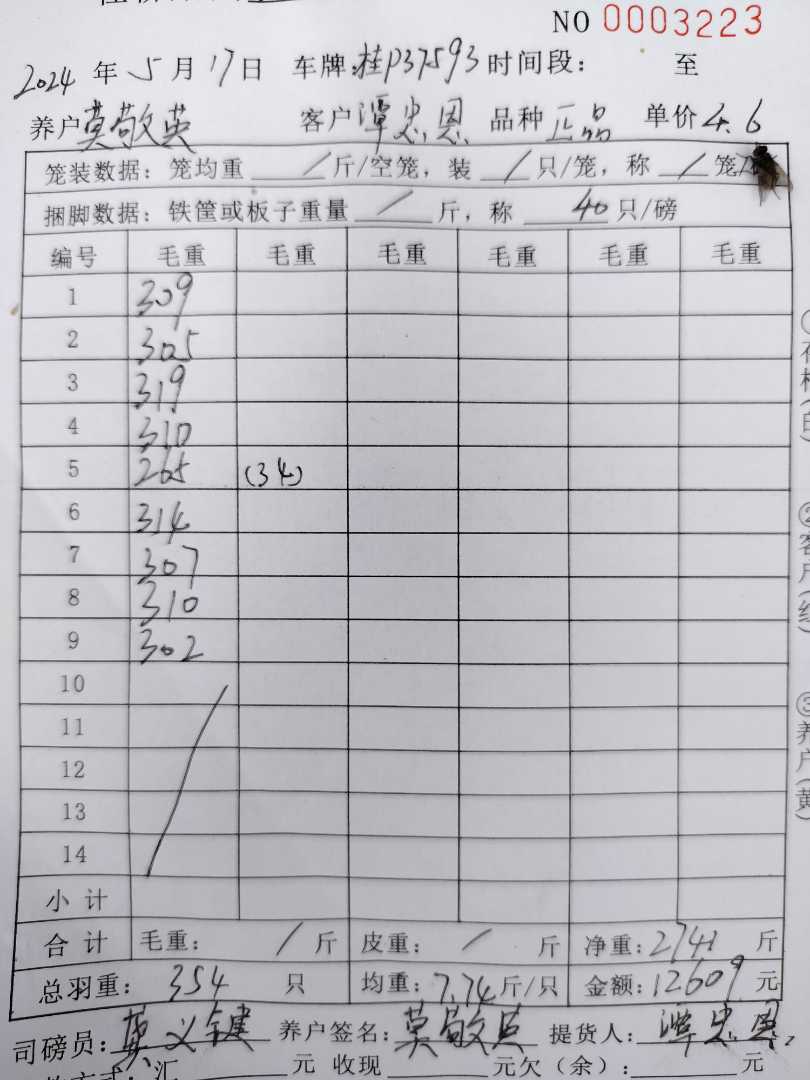 NO 0003223
2024 年 5 月 17 日 车牌:桂P37593 时间段: 至
养户 莫敬英 客户 潭忠恩 品种 正品 单价 4.6
笼装数据: 笼均重 / 斤/空笼, 装 / 只/笼, 称 / 笼/
捆脚数据: 铁筐或板子重量 / 斤, 称 40 只/磅
编号 毛重 毛重 毛重 毛重 毛重 毛重
1 309
2 305
3 319
4 310
5 265 (34)
6 314
7 307
8 310
9 302
10
11
12
13
14
小计
合计 毛重: / 斤 皮重: / 斤 净重: 2741 斤
总羽重: 354 只 均重: 7.74 斤/只 金额: 12609 元
司磅员: 莫义健 养户签名: 莫敬英 提货人: 潭忠恩
方式: 汇 元 收现 元欠(余): 元
② 客户(红)
③ 养户(黄)